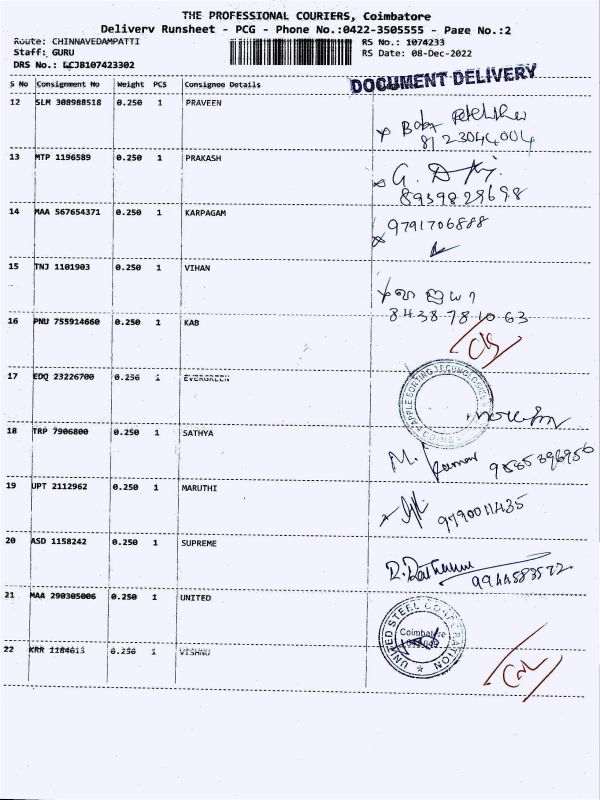 THE PROFESSIONAL COURIERS, Coimbatore
Delivery Runsheet - PCG - Phone No.:0422-3505555 - Page No.:2
Route: CHINNAVEDAMPATTI RS No.: 1074233
Staff: GURU RS Date: 08-Dec-2022
DRS No.: LCJB107423302
DOCUMENT DELIVERY
S No Consignment No Weight PCS Consignee Details
12 SLM 308988518 0.250 1 PRAVEEN
8123044004
13 MTP 1196589 0.250 1 PRAKASH
G.
8939829698
14 MAA 567654371 0.250 1 KARPAGAM
9791706888
15 TNJ 1101903 0.250 1 VIHAN
8438781063
16 PNU 755914660 0.250 1 KAB
17 EDQ 23226700 0.250 1 EVERGREEN
APPLE SORTING TECHNOLOGIES
18 TRP 7906800 0.250 1 SATHYA
M. Kumar 9585396956
19 UPT 2112962 0.250 1 MARUTHI
9790011435
20 ASD 1158242 0.250 1 SUPREME
9944583572
21 MAA 290305006 0.250 1 UNITED
UNITED STEEL CORPORATION
Coimbatore
22 KRR 1184613 0.250 1 VISHNU